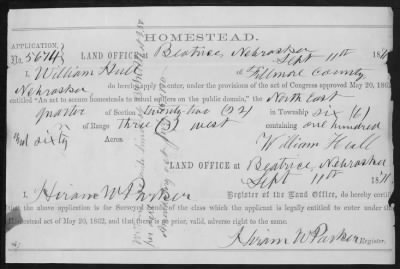 HOMESTEAD.
APPLICATION,
No. 5674
LAND OFFICE at Beatrice, Nebraska
Sept 11th 187
I, William Hull of Fillmore County
Nebraska do hereby apply to enter, under the provisions of the act of Congress approved May 20, 1862,
entitled "An act to secure homesteads to actual settlers on the public domain," the North East
quarter of Section twenty-two (22) in Township six (6)
of Range three (3) west containing one hundred
and sixty Acres.
William Hull
LAND OFFICE at Beatrice, Nebraska
Sept 11th 187
I, Hiram W Parker Register of the Land Office, do hereby
that the above application is for Surveyed Lands of the class which the applicant is legally entitled to enter under the
Homestead act of May 20, 1862, and that there is no prior, valid, adverse right to the same.
Hiram W Parker Register.